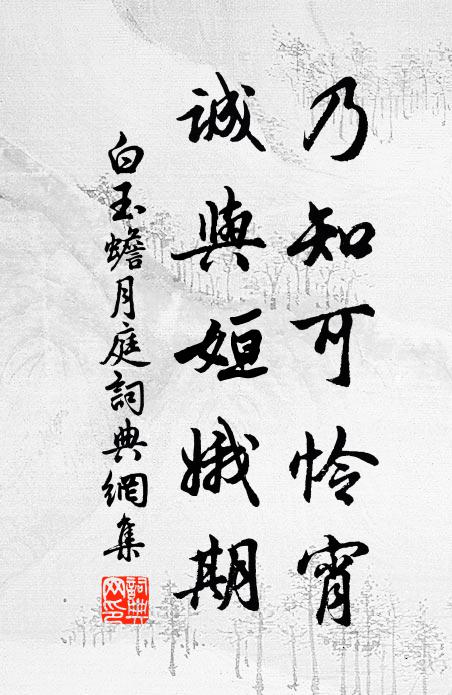 乃知可怜宵
誠與姮娥期
白玉蟾月庭詞典網集
詞典網印